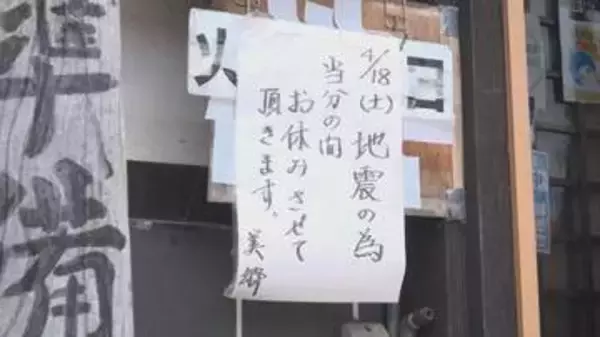 4/18(土)地震の為
当分の間
お休みさせて
頂きます。
美郷
準備
火
日